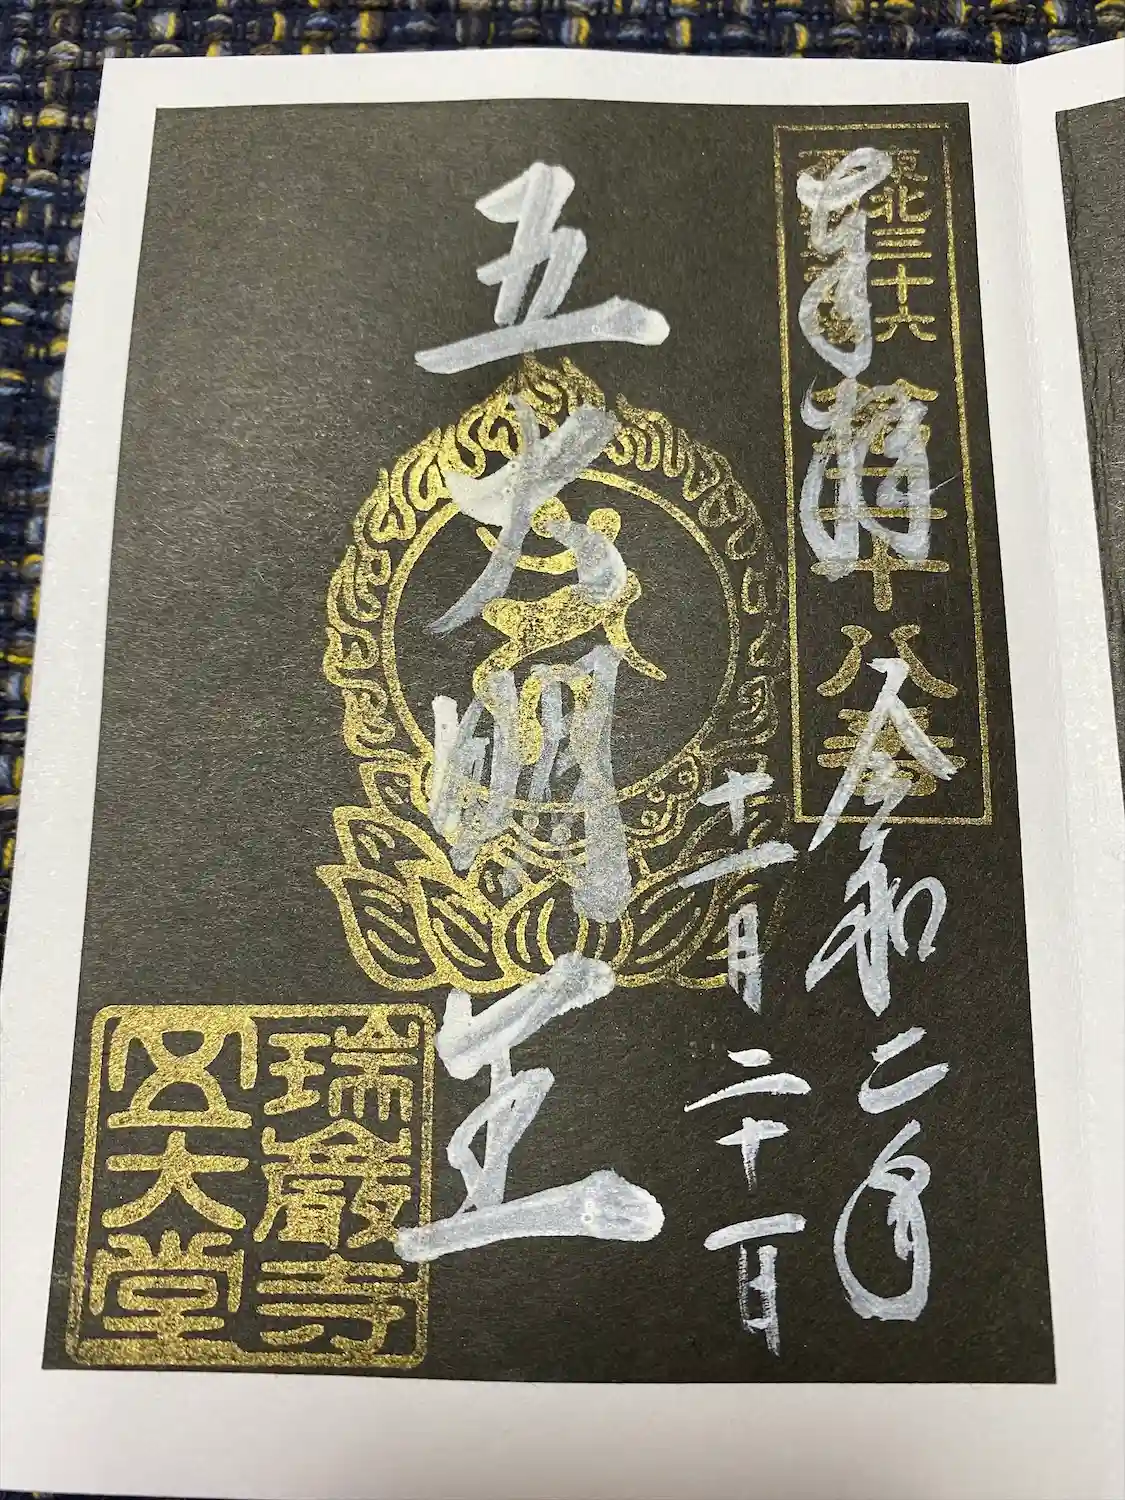 東北三十六
奉拝
二十八番
令和二年
十一月二十一日
五大明王
瑞巌寺
五大堂